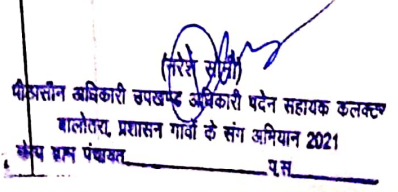 (नरेश सोनी)
पीठासीन अधिकारी उपखण्ड अधिकारी पदेन सहायक कलक्टर
बालोतरा, प्रशासन गांवों के संग अभियान 2021
ग्राम पंचायत